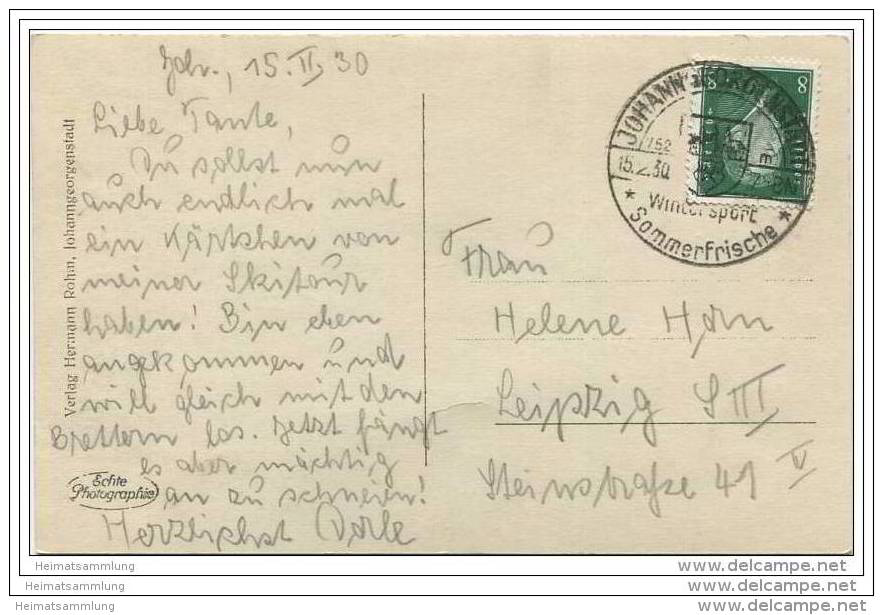 Joh., 15. II. 30
Liebe Tante,
Du sollst nun
auch endlich mal
ein Kärtchen von
meiner Skitour
haben! Bin eben
angekommen und
will gleich mit den
Brettern los. Jetzt fängt
es aber mächtig
an zu schneien!
Herzlichst Dorle
Verlag Hermann Rohm, Johanngeorgenstadt
Echte
Photographie
8 8
JOHANNGEORGENSTADT
15.2.30
* Wintersport *
Sommerfrische
Frau
Helene Horn
Leipzig S III
Steinstraße 41 V
Heimatsammlung
Heimatsammlung
Heimatsammlung
delcampe.net
delcampe.net
delcampe.net